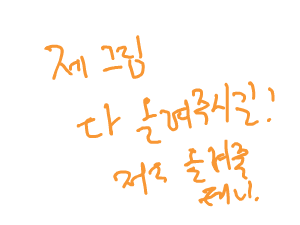 제 그림
다 올려주시길!
저도 올려줄
테니.